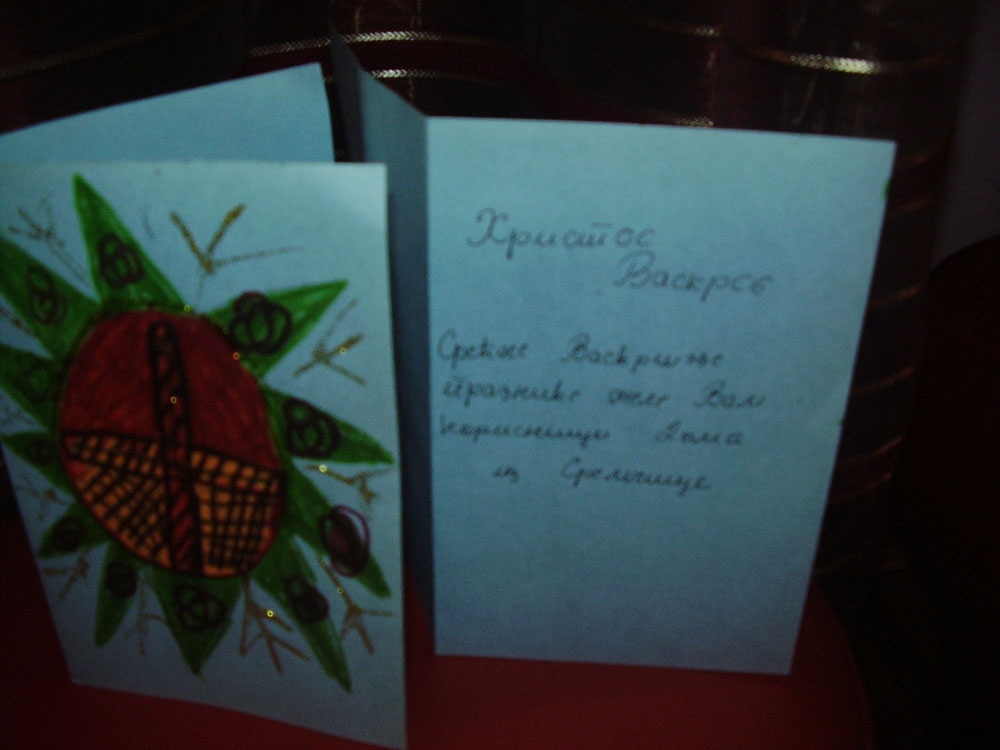 Христос
Васкрсе
Срећне Васкршње
празнике желе Вам
корисници Дома
из Сремчице